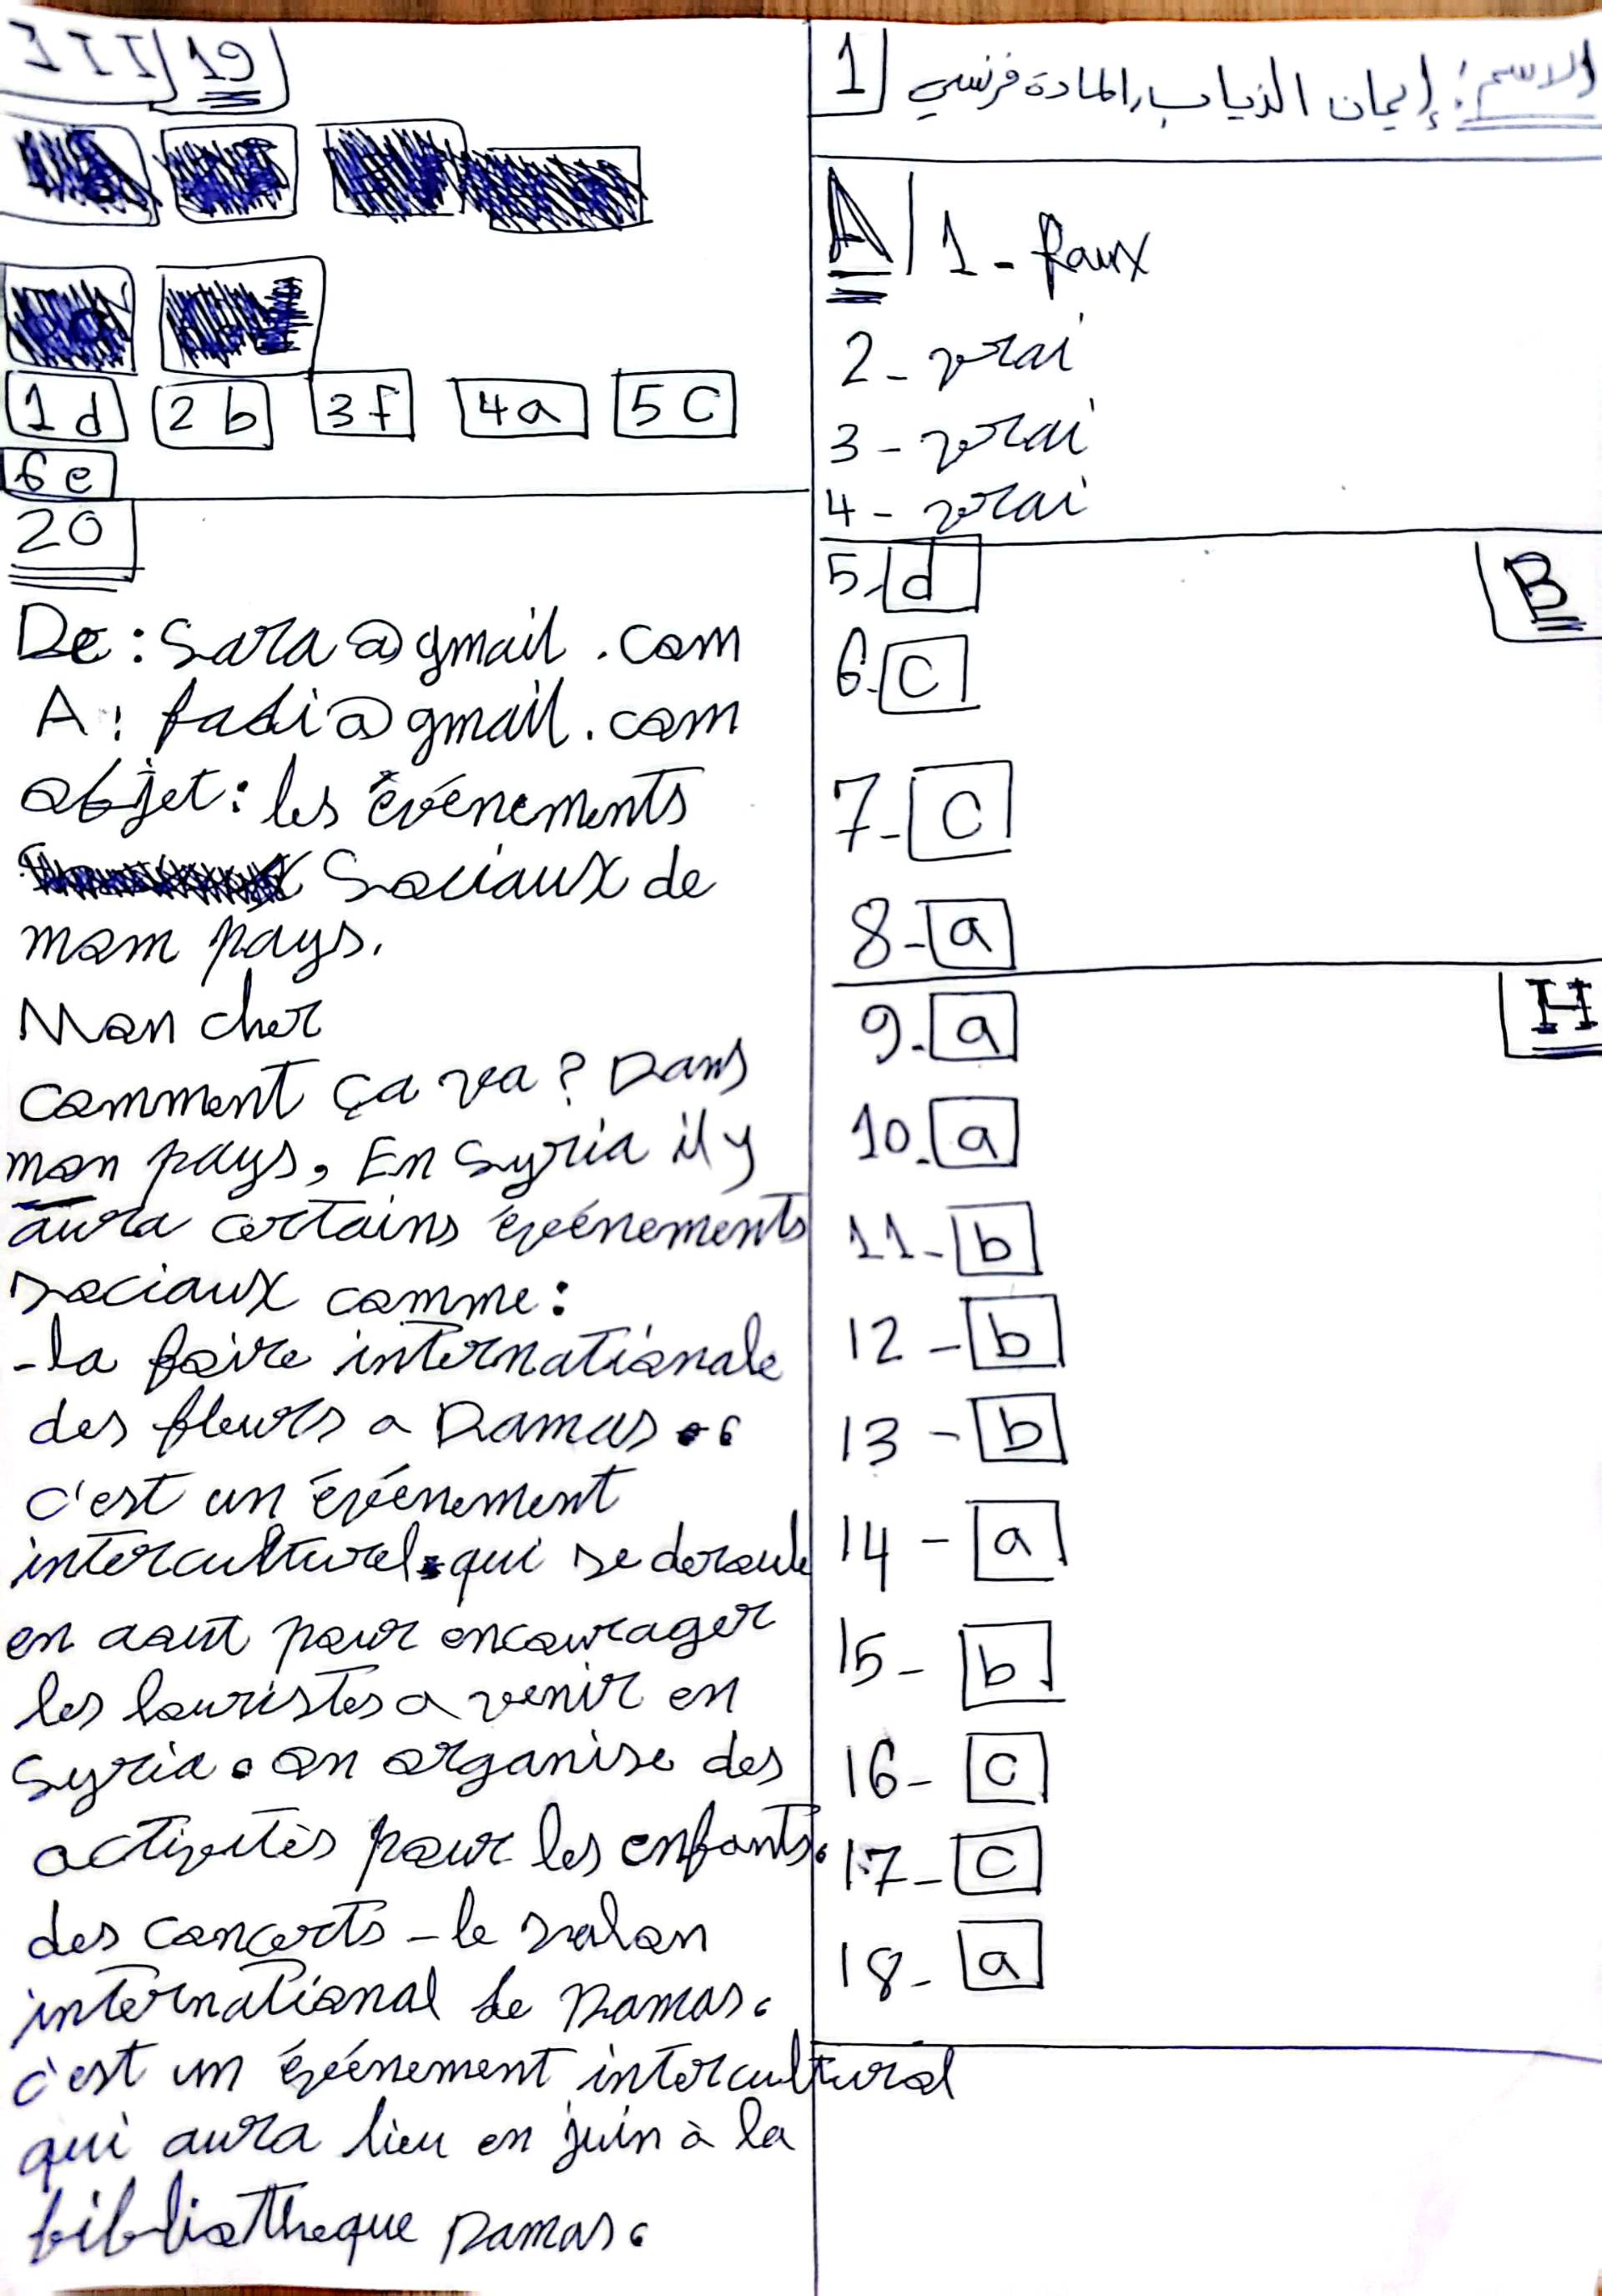 الاسم: إيمان الذياب, المادة فرنسي
1
A
1 - faux
2 - vrai
3 - vrai
4 - vrai
B
5. d
6. c
7 - c
8 - a
H
9. a
10. a
11 - b
12 - b
13 - b
14 - a
15 - b
16 - c
17 - c
18 - a
III 19
1 d 2 b 3 f 4 a 5 C
6 e
20
De : Sara@gmail.com
A : fadi@gmail.com
objet : les événements
Sociaux de
mom pays.
Mon cher
comment ça va ? Dans
mon pays, En Syria il y
aura certains événements
sociaux comme :
- la foire internationale
des fleurs a Damas.
c'est un événement
interculturel qui se deroule
en aout pour encourager
les touristes a venir en
Syria. on organise des
activités pour les enfants.
des concerts - le salon
international de Damas.
c'est un événement interculturel
qui aura lieu en juin à la
bibliotheque Damas.